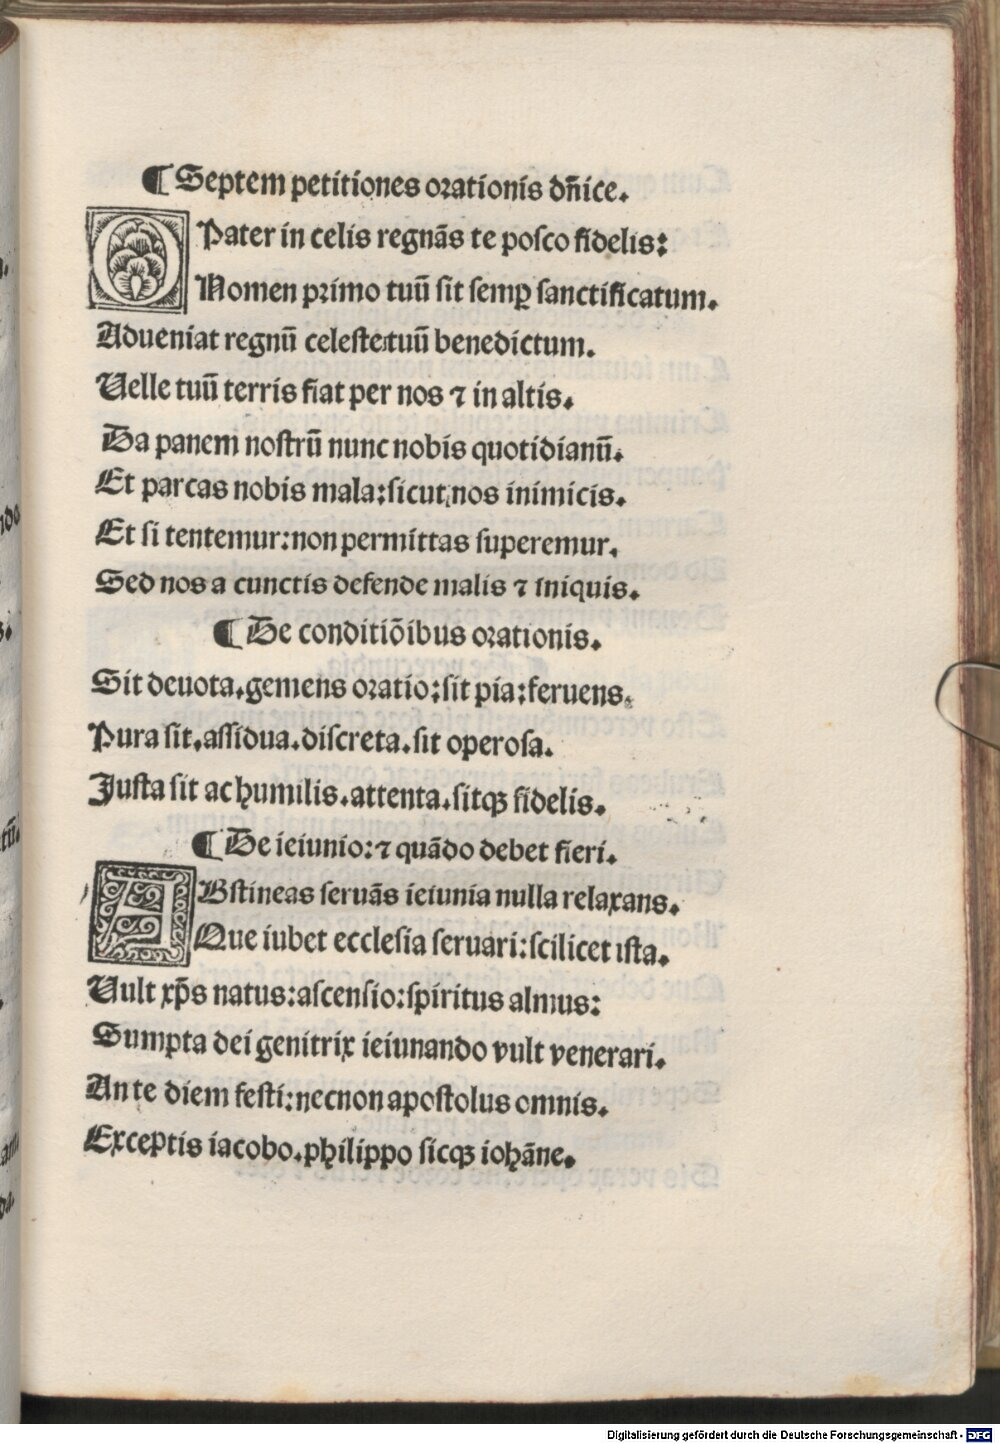 ¶ Septem petitiones orationis dn̄ice.
O Pater in celis regnās te posco fidelis:
Nomen primo tuū sit semꝑ sanctificatum.
Adueniat regnū celeste:tuū benedictum.
Uelle tuū terris fiat per nos ⁊ in altis.
Da panem nostrū nunc nobis quotidianū.
Et parcas nobis mala:sicut nos inimicis.
Et si tentemur:non permittas superemur.
Sed nos a cunctis defende malis ⁊ iniquis.
¶ De conditiōibus orationis.
Sit deuota.gemens oratio:sit pia:feruens.
Pura sit.assidua.discreta.sit operosa.
Justa sit ac humilis.attenta.sitqꝫ fidelis.
¶ De ieiunio:⁊ quādo debet fieri.
ABstineas seruās ieiunia nulla relaxans.
Que iubet ecclesia seruari:scilicet ista.
Uult xp̄s natus:ascensio:spiritus almus:
Sumpta dei genitrix ieiunando vult venerari.
Ante diem festi:necnon apostolus omnis.
Exceptis iacobo.philippo sicqꝫ iohāne.
Digitalisierung gefördert durch die Deutsche Forschungsgemeinschaft - DFG